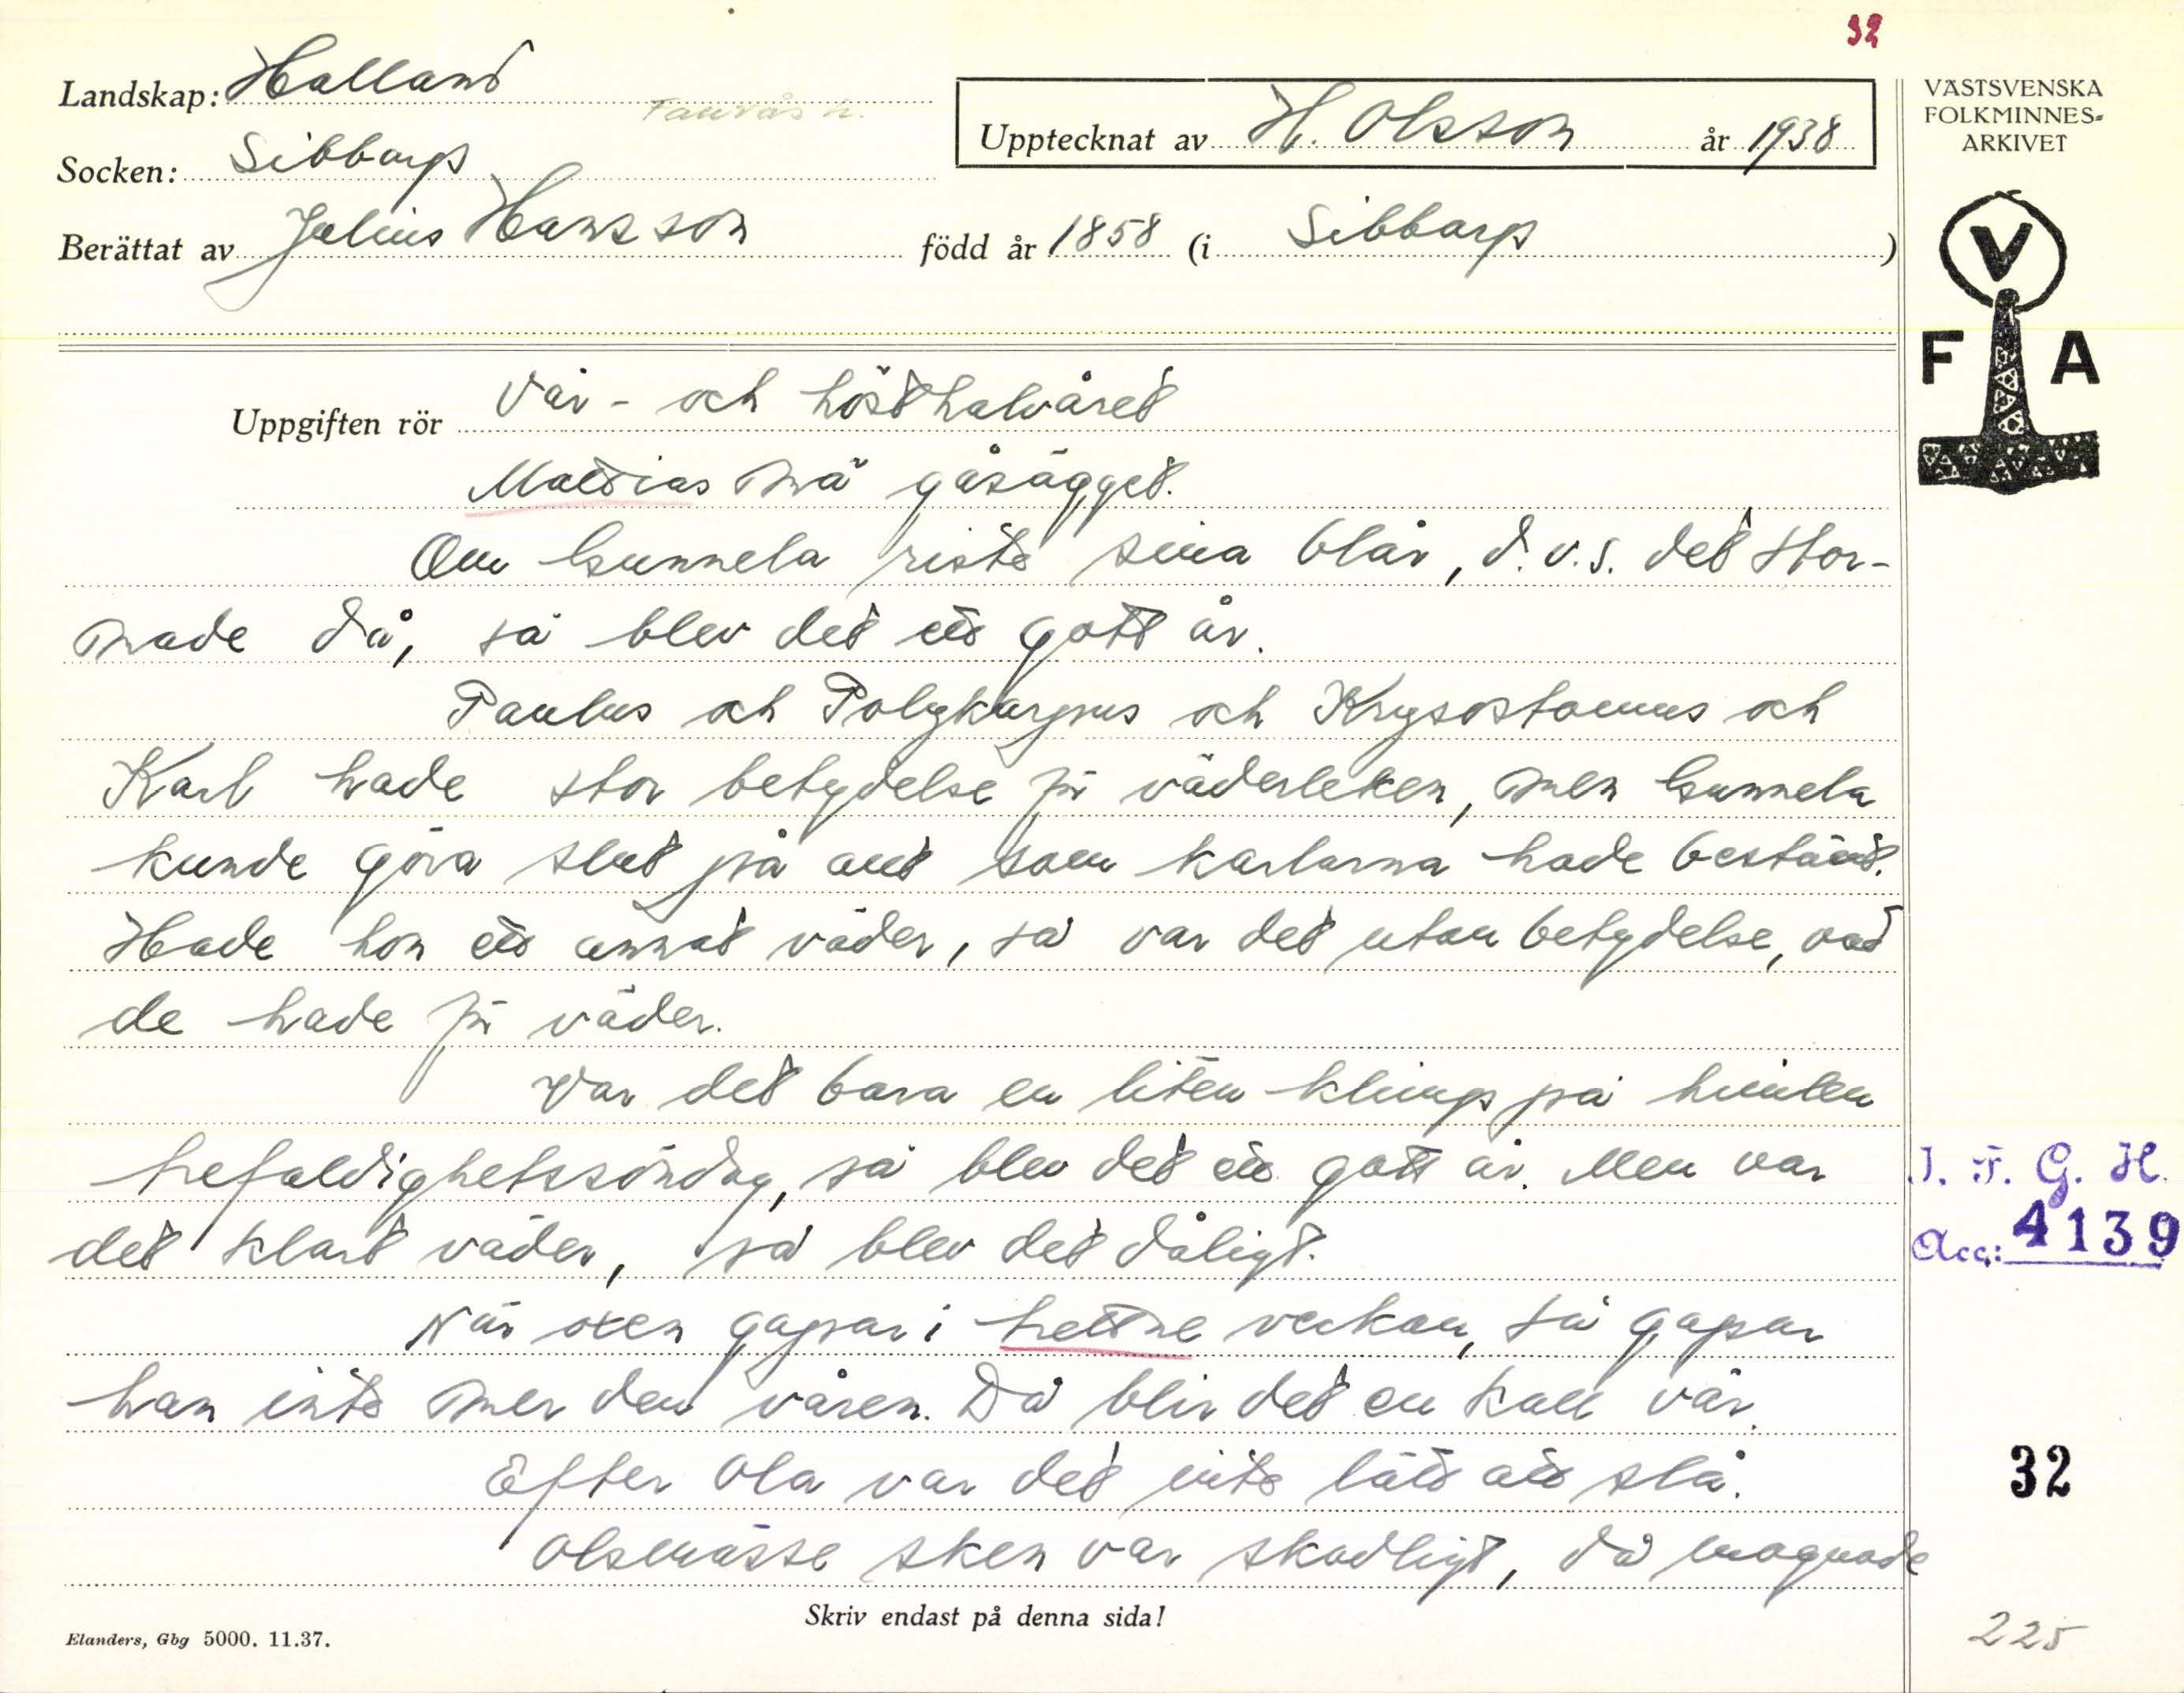 32
Landskap: Halland
Faurås h.
Upptecknat av H. Olsson år 1938
Socken: Sibbarp
Berättat av Julius Hansson född år 1858 (i Sibbarp)
VÄSTSVENSKA
FOLKMINNES-
ARKIVET
V
F A
Uppgiften rör Vår- och hösthalvåret
Mattias må gåsägget.
Om Gunnela riste sina blår, d.v.s. det stor-
made då, så blev det ett gott år.
Paulus och Polykarpus och Krysostomus och
Karl hade stor betydelse för väderleken, men Gunnela
kunde göra slut på allt som karlarna hade bestämt.
Hade hon ett annat väder, så var det utan betydelse, vad
de hade för väder.
Var det bara en liten klimp på himlen
trefaldighetssöndag, så blev det ett gott år. Men var
det klart väder, så blev det dåligt.
När oxen gapar i trettne veckan, så gapar
han inte mer den våren. Då blir det en kall vår.
Efter Ola var det inte lätt att slå.
Olsmässe sken var skadligt, då mognade
I. F. G. H.
Acc: 4139
32
225
Skriv endast på denna sida!
Elanders, Gbg 5000. 11.37.